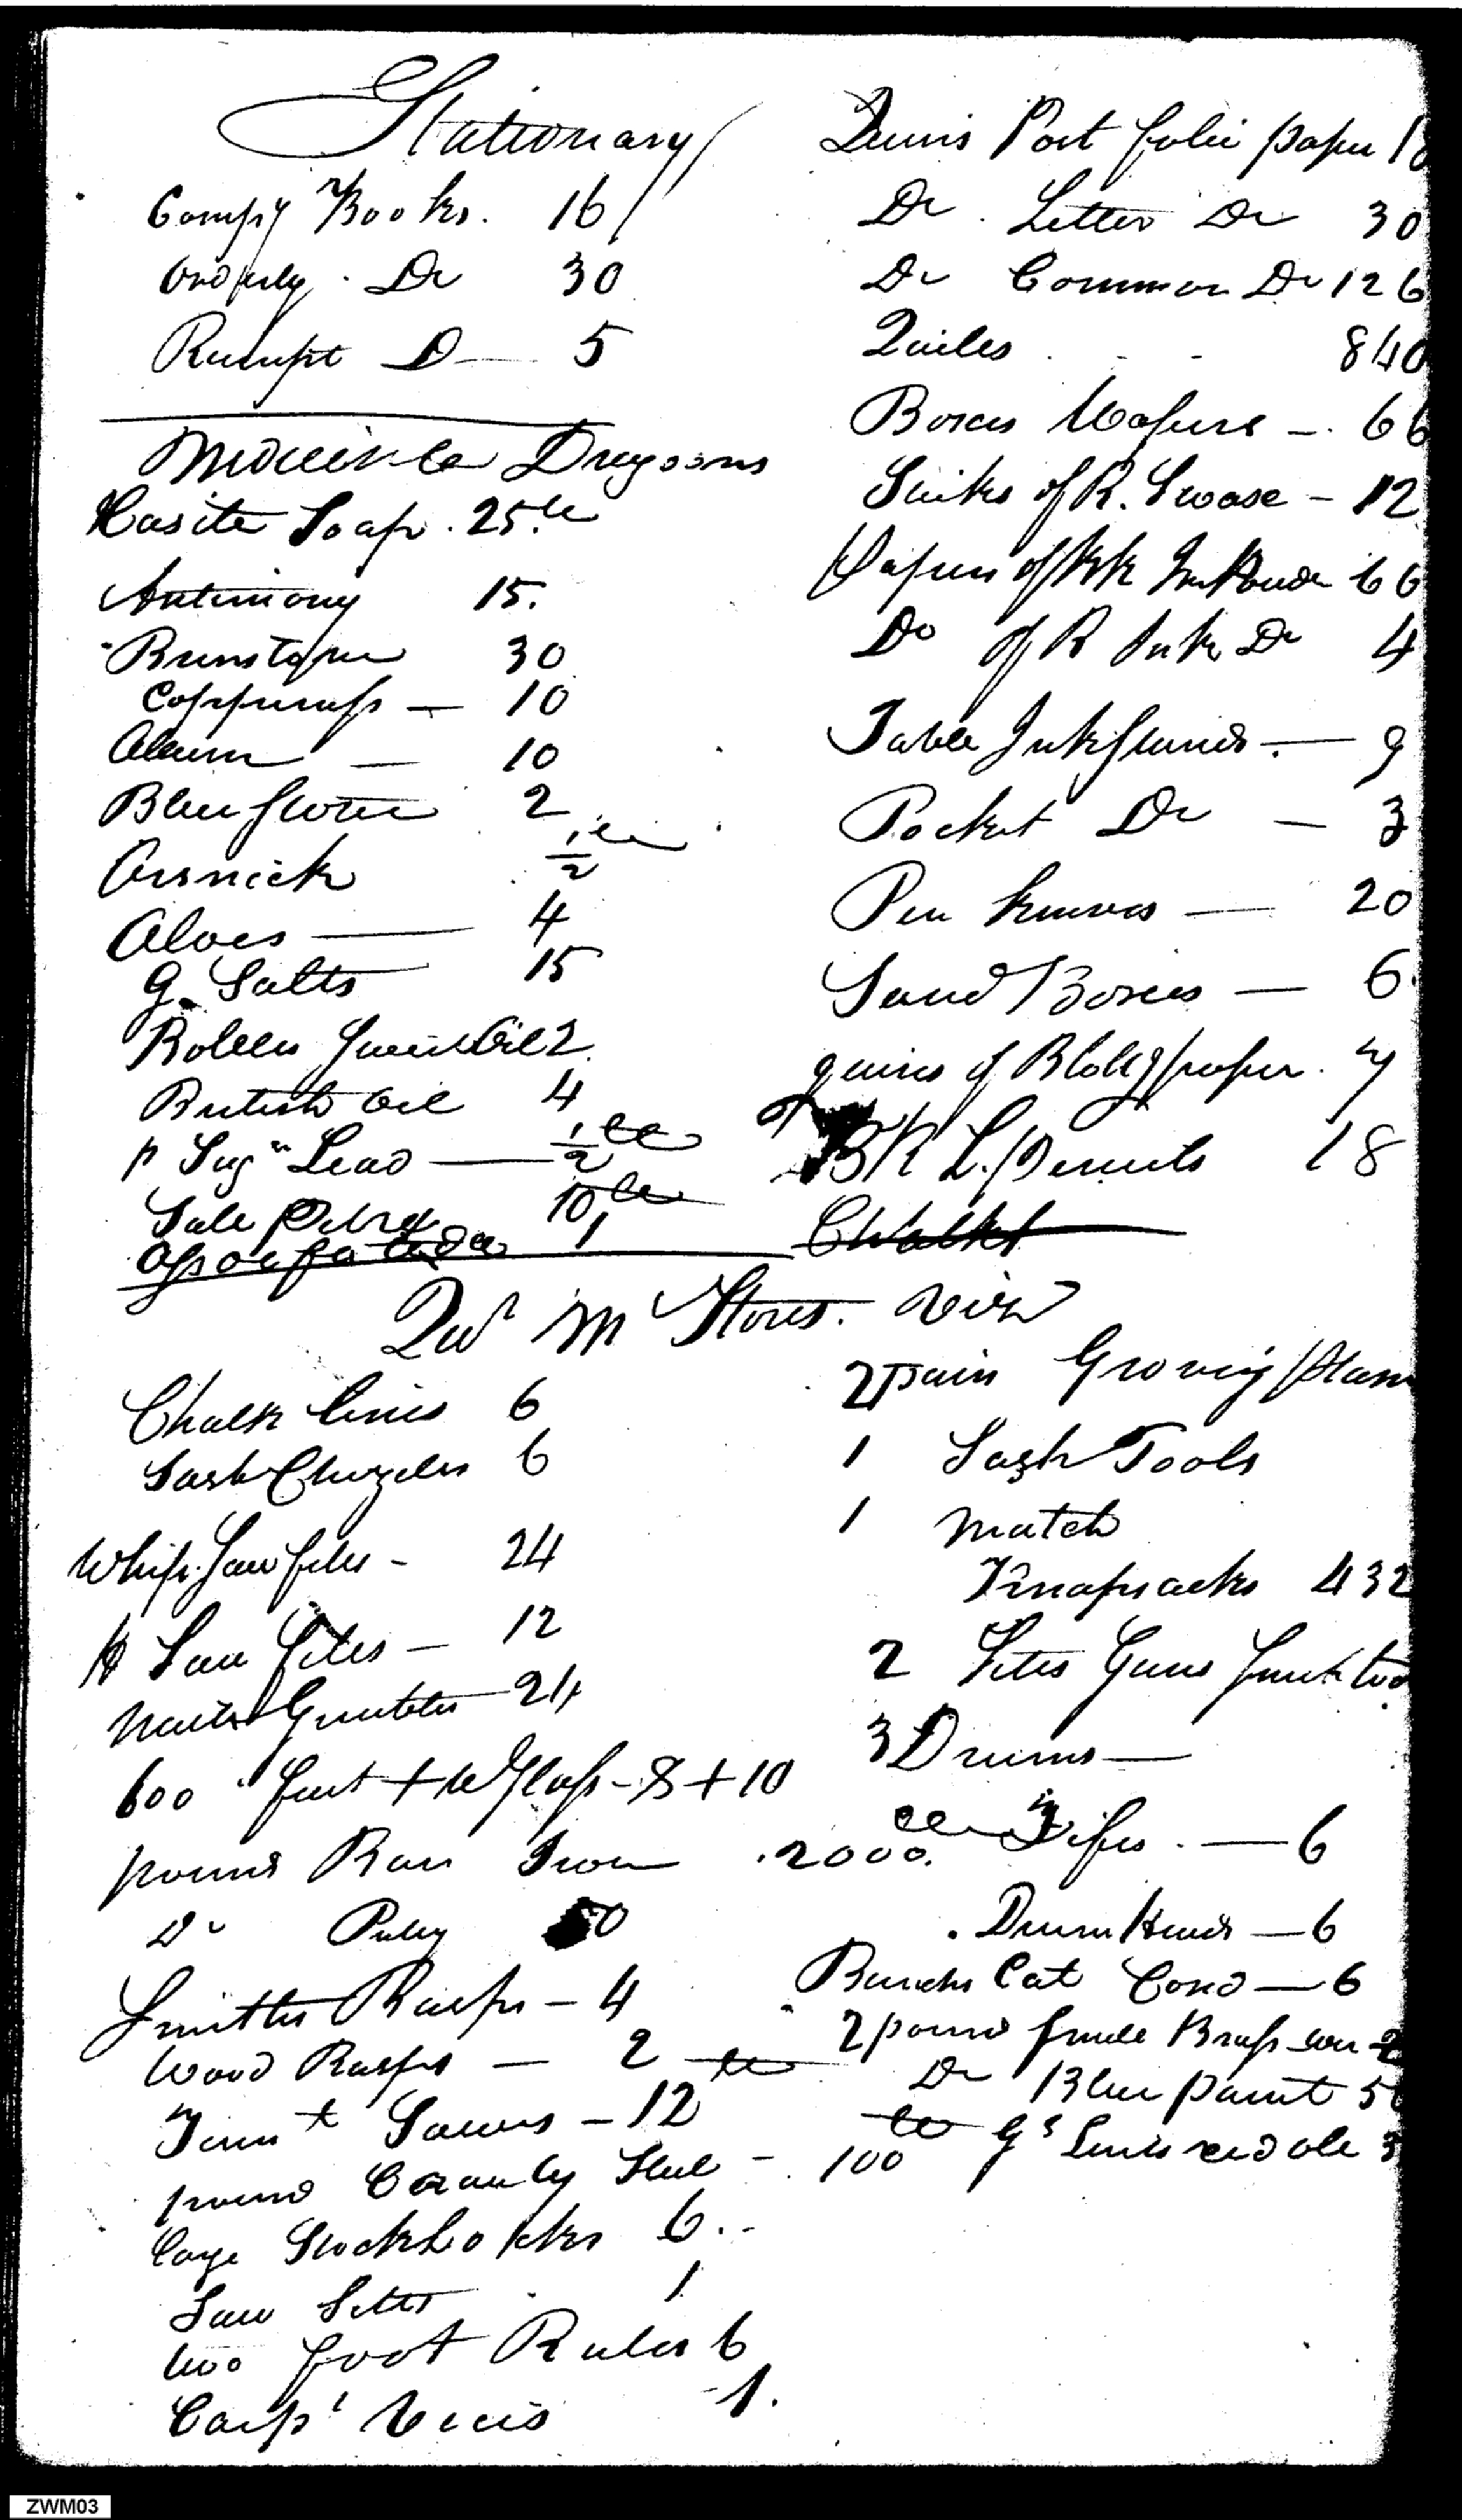 Stationary
Compy Books. 16
Orderly. Do 30
Receipt D — 5
Medicine Dragoons
Castte Soap. 25 lb
Antimony 15.
Brimstone 30
Copperass — 10
Allum — 10
Blew Stone 2
Arsnick 1/2 lb
Aloes — 4
G. Salts 15
British Oil 4
p Sug Lead — 1/2 lb
Salt Petre 10 lb
Quires Post folio paper
Do. Letter Do 30
Do Common Do 126
Quiles 840
Boxes Wafers — 66
Sticks of R. Swase — 12
Papers of BK Ink Powder 66
Do of R Ink Do 4
Table Inkstands. — 9
Pocket Do — 3
Pen knives — 20
Sand Boxes — 6.
quires of Blottg paper. 7
BK L. Pencils 18
Chalk
Qur M Stores.
Chalk lines 6
Sash Chizeles 6
Whip. Saw files - 24
Saw files — 12
Nails Gimblets — 24
600 feet + W Glass - 8 + 10
pound Barr Iron. 2000. lb
Do Putty 50
Smiths Rasps — 4
Wood Rasps — 2
Tenнt Sawes — 12
pound Crawly Steel - 100 lb
large Stock Locks 6.
Saw Setts 1
two foot Rules 6
Carps Vices 1.
2 pair Groving Plans
1 Sash Tools
1 match
Knapsacks 432
2 Setts Guns
3 Drums —
Fifes. — 6
Drum Heads — 6
Bunchs Cat Cord — 6
2 pound Smale Brass wire 2
Do Blue paint